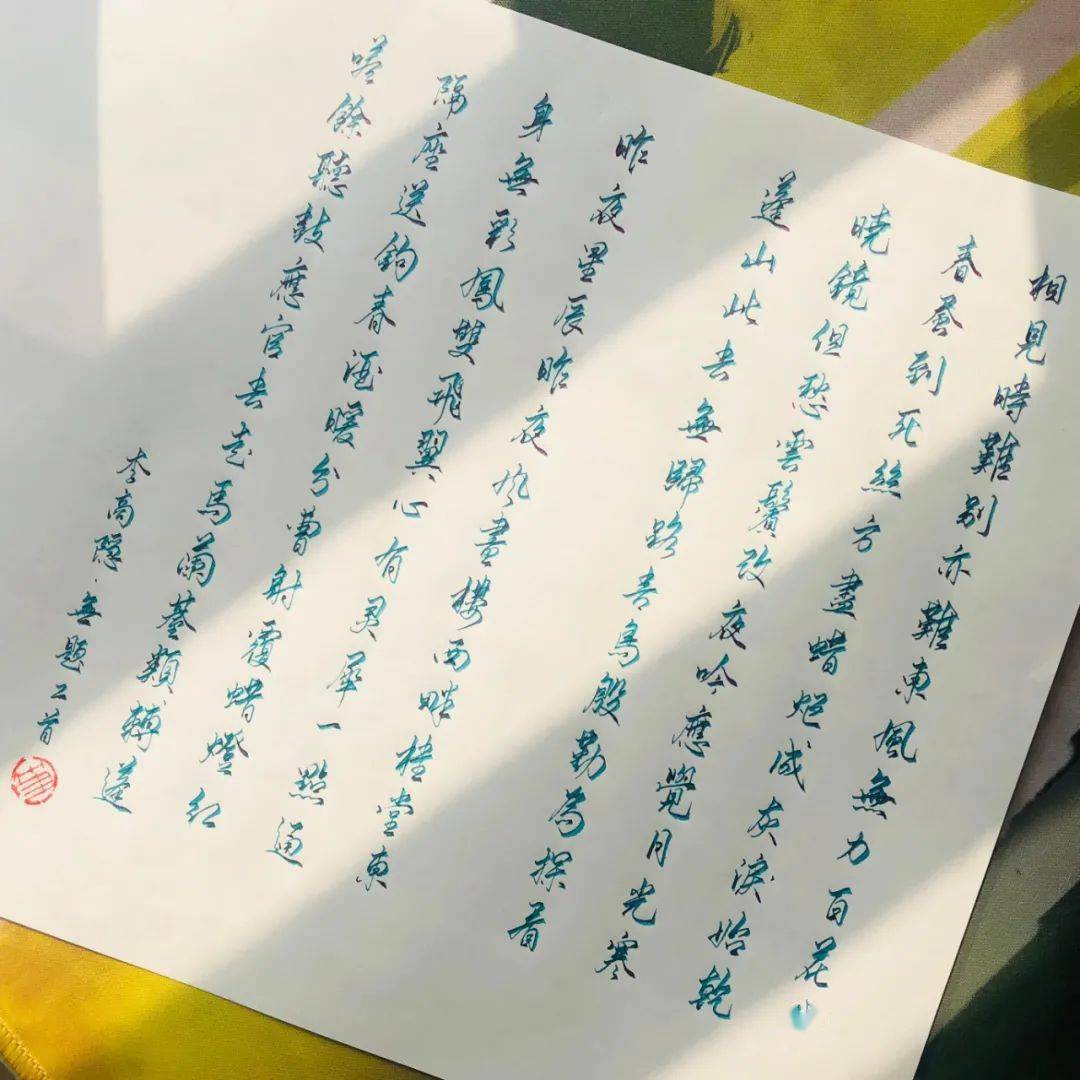 相見時難別亦難東風無力百花
春蚕到死絲方盡蜡炬成灰淚始乾
曉鏡但愁雲鬢改夜吟應覺月光寒
蓬山此去無歸路青鳥殷勤為探看
昨夜星辰昨夜风畫樓西畔桂堂東
身無彩鳳雙飛翼心有灵犀一點通
隔座送鉤春酒暖分曹射覆蜡燈红
嗟餘聽鼓應官去走馬蘭臺類轉蓬
李商隐·無题二首